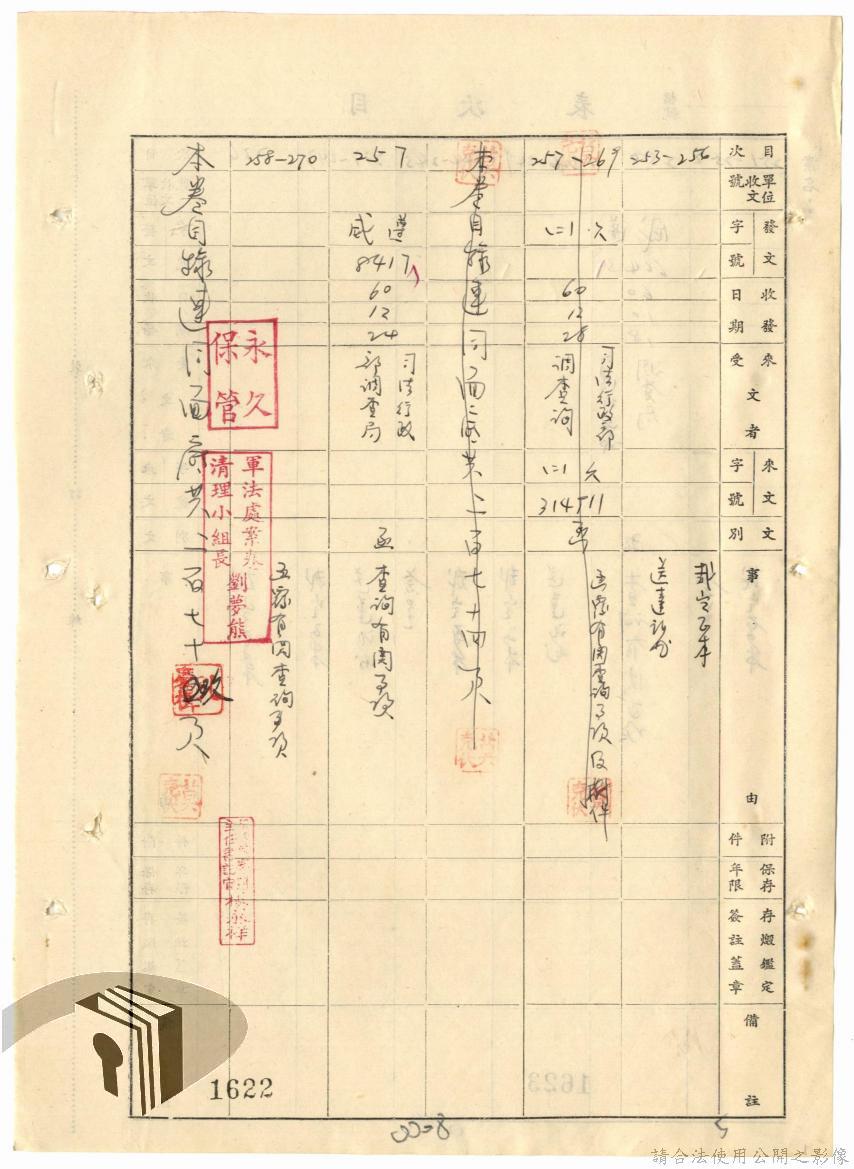 目次
單位收文號
發文字號
收發日期
來文受文者
來文字號
文別
事由
附件
保存年限
存燬鑑定簽註蓋章
備註
253-256
裁定正本
送達證書
257-269
60
12
28
司法行政部
調查
314511
函覆有關查詢事項及附件
本卷目錄連同面底共二百七十四頁
257
8417
60
12
24
司法行政
部調查局
函
查詢有關事項
258-270
函覆有關查詢事項
本卷目錄連同面底共二百七十
頁
永久
保管
軍法處案卷
清理小組長
劉夢熊
1622
請合法使用公開之影像